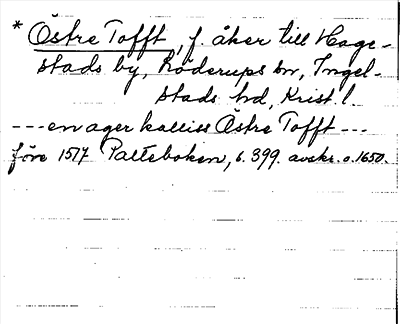 * Östre Tofft, f. åker till Hage-
stads by, Löderups sn, Ingel-
stads hd, Krist. l.
--- en ager kalliss Östre Tofft ---
före 1517 Palteboken, s. 399. avskr. o. 1650.